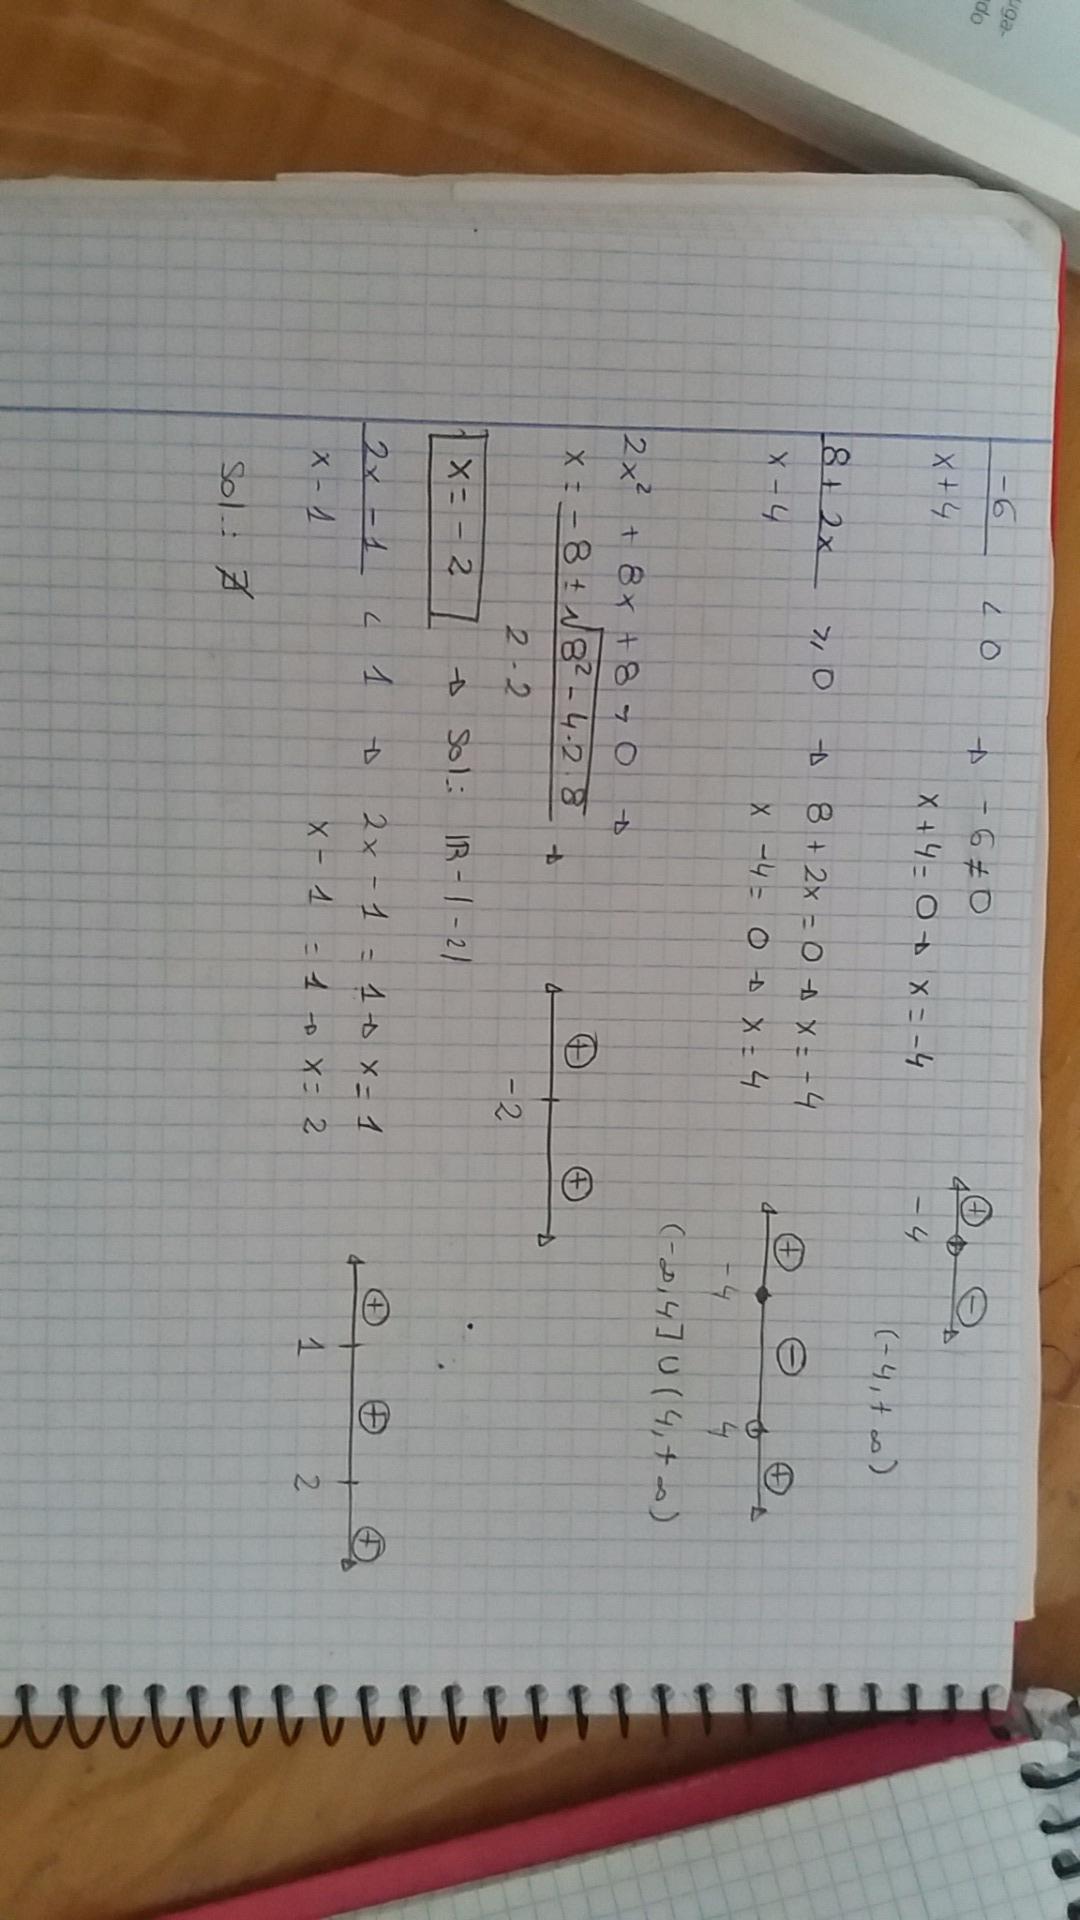 -6/x+4 < 0 → -6 ≠ 0
x+4=0 → x=-4
⊕ -4 ⊖
(-4,+∞)
8+2x/x-4 ⩾ 0 → 8+2x=0 → x=-4
x-4=0 → x=4
⊕ -4 ⊖ 4 ⊕
(-∞,4] ∪ (4,+∞)
2x² + 8x + 8 > 0 →
x = -8±√8²-4·2·8/2·2 →
⊕ -2 ⊕
x = -2 → Sol.: ℝ-|-2|
2x-1/x-1 < 1 → 2x-1=1 → x=1
x-1=1 → x=2
⊕ 1 ⊕ 2 ⊕
Sol.: ∄
uga-
do